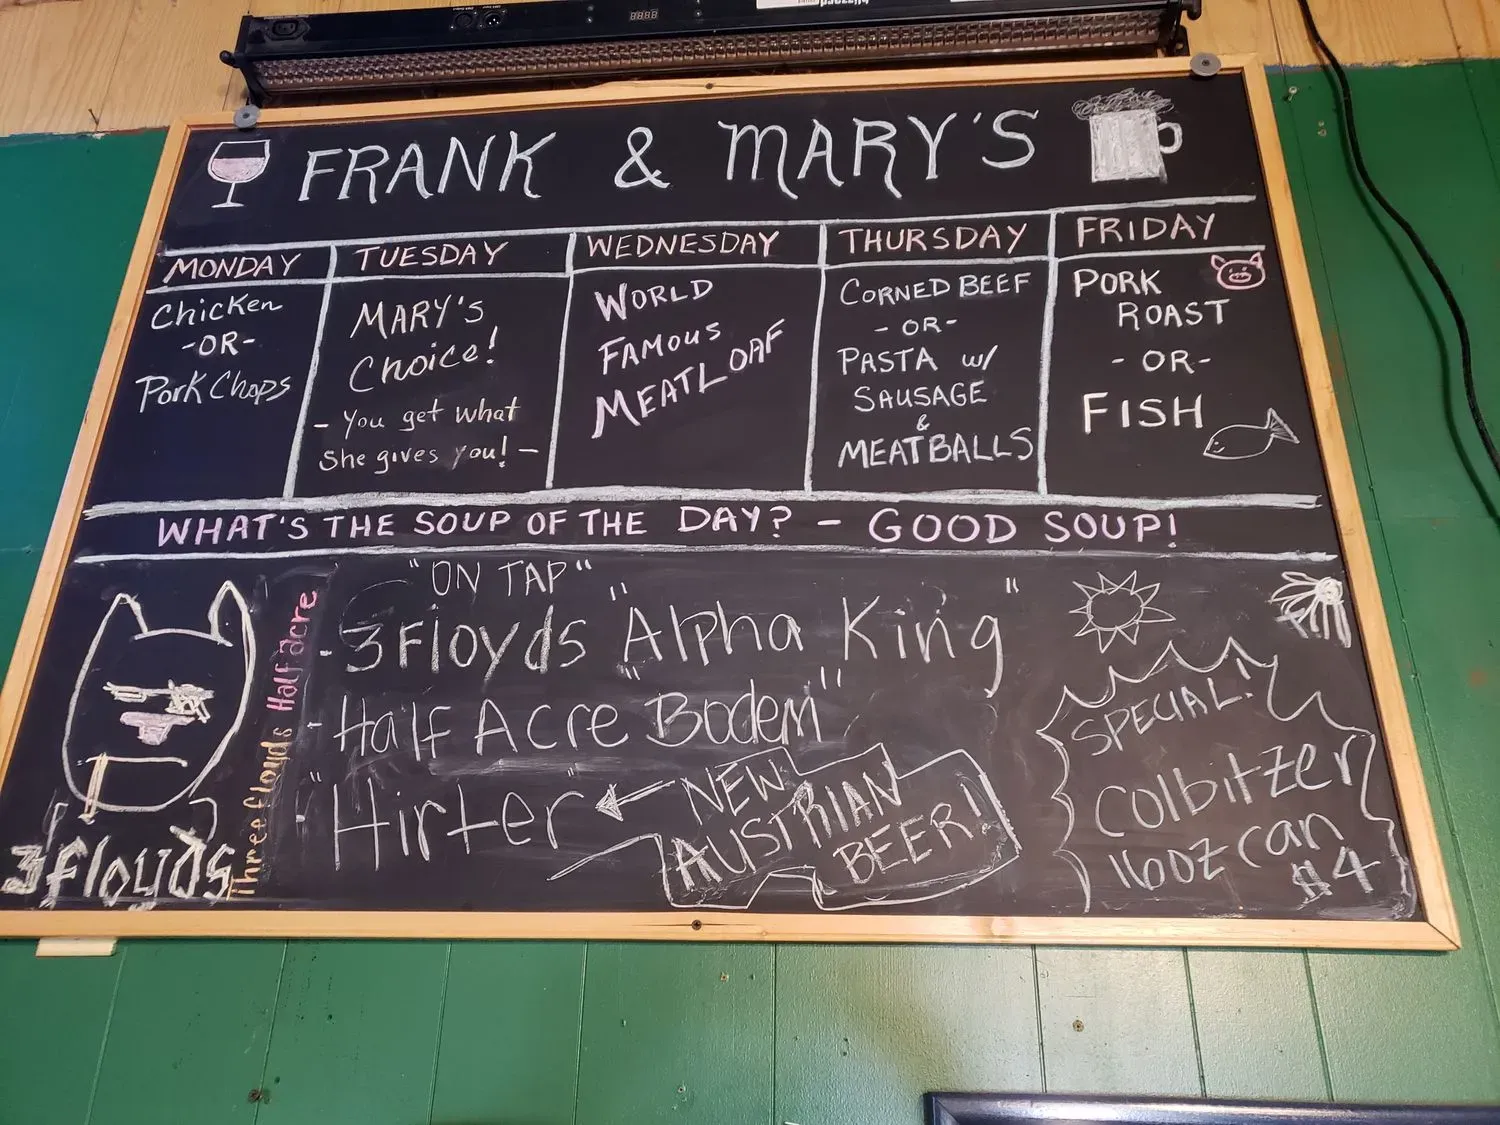 FRANK & MARY'S
MONDAY
Chicken
-OR-
Pork Chops
TUESDAY
MARY'S
Choice!
- You get what
She gives you! -
WEDNESDAY
WORLD
FAMOUS
MEATLOAF
THURSDAY
CORNED BEEF
-OR-
PASTA w/
SAUSAGE
&
MEATBALLS
FRIDAY
PORK
ROAST
-OR-
FISH
WHAT'S THE SOUP OF THE DAY? - GOOD SOUP!
3floyds
Three floyds Half acre
"ON TAP"
- 3 Floyds "Alpha King"
- Half Acre "Bodem"
- "Hirter"
NEW
AUSTRIAN
BEER!
SPECIAL!
Colbitzer
16oz can
$4